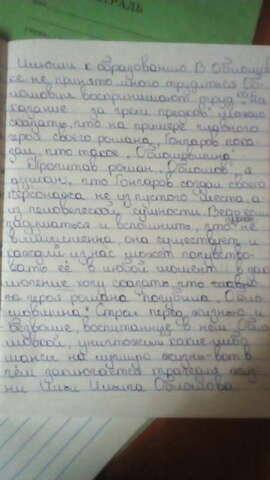 Ильюши к образованию. В Обломов
ке не принято много трудиться. Об
ломовцы воспринимают труд как "на
казание" за грехи предков. Можно
сказать, что на примере главного
героя своего романа, Гончаров пока
зал, что такое "Обломовщина".
Прочитав роман "Обломов", я
думаю, что Гончаров создал своего
персонажа не из пустого места, а
из человеческой сущности. Ведь если
задуматься и вспомнить, что не
вымышленна, она существует и
каждый из нас может почувство-
вать её в любой момент. В зак
лючение хочу сказать, что главно
го героя романа погубила "Обло
мовщина". Страх перед жизнью и
безволие, воспитанные в нём Обло
мовкой, уничтожили какие-либо
шансы на лучшую жизнь - вот в
чём заключается трагедия жиз
ни Ильи Ильича Обломова.